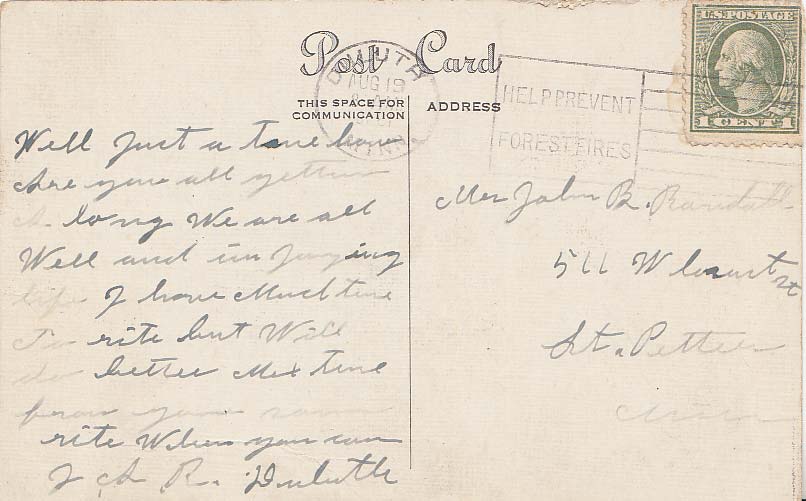 Post Card
U.S. POSTAGE
1 CENT 1
DULUTH
AUG 19
MINN.
HELP PREVENT
FOREST FIRES
THIS SPACE FOR
COMMUNICATION
ADDRESS
Well Just a tine how
Are you all gettin
A long We are all
Well and in Joying
life I have Much tine
To rite but Will
do better Nex tine
from your
rite When you can
J A R. Duluth
Mrs John B. Randall
511 W locust St
St. Petter
Minn